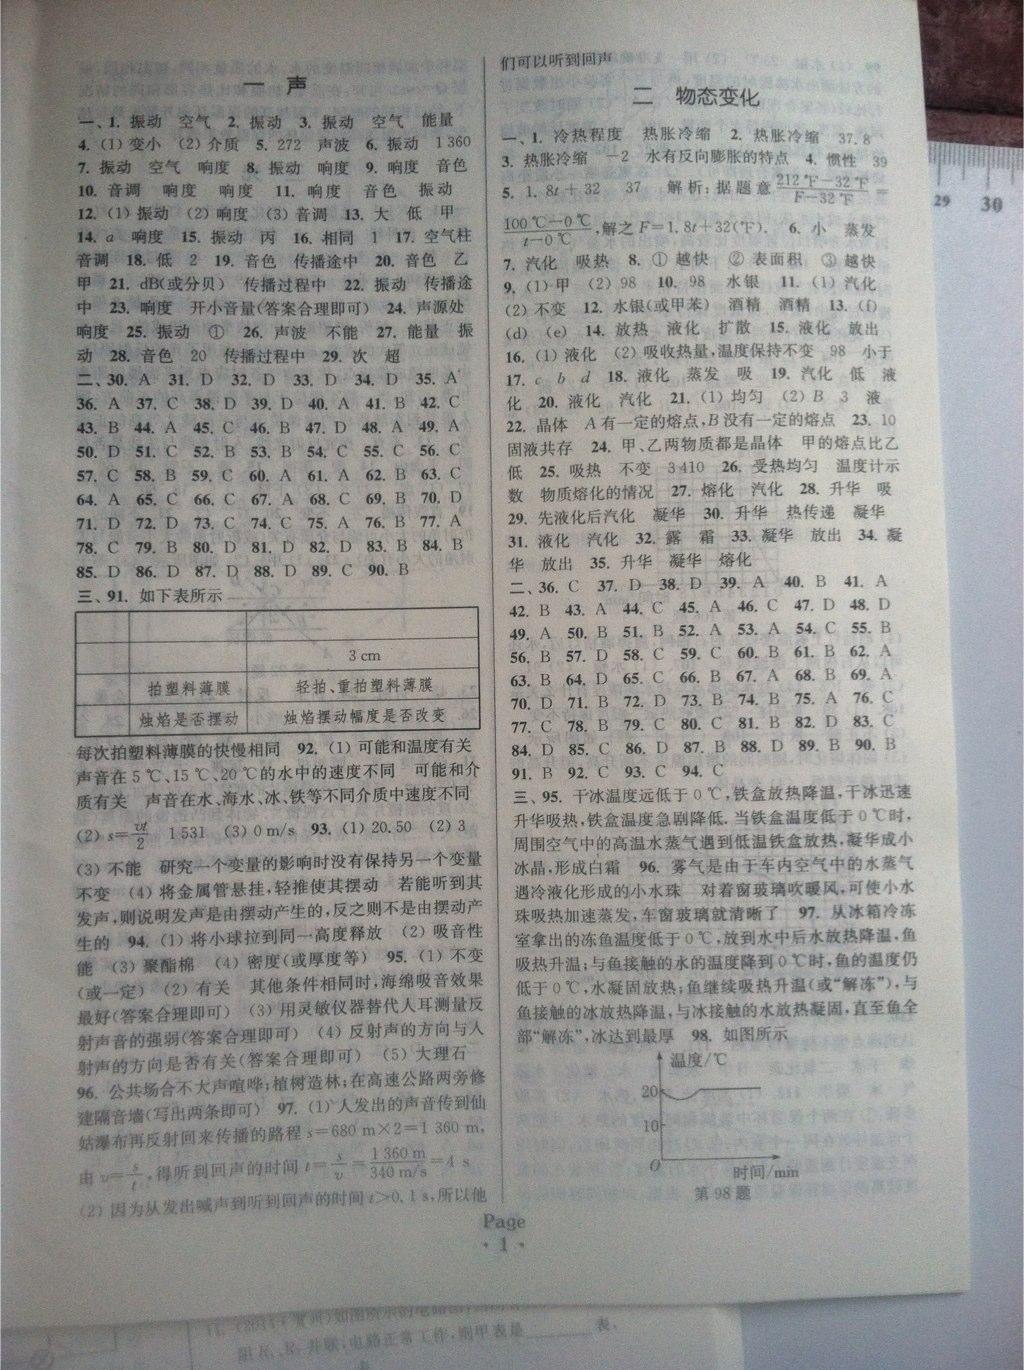 一 声
一、1. 振动 空气 2. 振动 3. 振动 空气 能量
4. (1) 变小 (2) 介质 5. 272 声波 6. 振动 1 360
7. 振动 空气 响度 8. 振动 响度 9. 响度 音色
10. 音调 响度 响度 11. 响度 音色 振动
12. (1) 振动 (2) 响度 (3) 音调 13. 大 低 甲
14. a 响度 15. 振动 丙 16. 相同 1 17. 空气柱
音调 18. 低 2 19. 音色 传播途中 20. 音色 乙
甲 21. dB(或分贝) 传播过程中 22. 振动 传播途
中 23. 响度 开小音量(答案合理即可) 24. 声源处
响度 25. 振动 ① 26. 声波 不能 27. 能量 振
动 28. 音色 20 传播过程中 29. 次 超
二、30. A 31. D 32. D 33. D 34. D 35. A
36. A 37. C 38. D 39. D 40. A 41. B 42. C
43. B 44. A 45. C 46. B 47. D 48. A 49. A
50. D 51. C 52. B 53. B 54. C 55. C 56. C
57. C 58. B 59. C 60. A 61. A 62. B 63. C
64. A 65. C 66. C 67. A 68. C 69. B 70. D
71. D 72. D 73. C 74. C 75. A 76. B 77. A
78. C 79. B 80. D 81. D 82. D 83. B 84. B
85. D 86. D 87. D 88. D 89. C 90. B
三、91. 如下表所示
3 cm
拍塑料薄膜 轻拍、重拍塑料薄膜
烛焰是否摆动 烛焰摆动幅度是否改变
每次拍塑料薄膜的快慢相同 92. (1) 可能和温度有关
声音在 5 ℃、15 ℃、20 ℃的水中的速度不同 可能和介
质有关 声音在水、海水、冰、铁等不同介质中速度不同
(2) s=vt/2 1 531 (3) 0 m/s 93. (1) 20.50 (2) 3
(3) 不能 研究一个变量的影响时没有保持另一个变量
不变 (4) 将金属管悬挂,轻推使其摆动 若能听到其
发声,则说明发声是由摆动产生的,反之则不是由摆动产
生的 94. (1) 将小球拉到同一高度释放 (2) 吸音性
能 (3) 聚酯棉 (4) 密度(或厚度等) 95. (1) 不变
(或一定) (2) 有关 其他条件相同时,海绵吸音效果
最好(答案合理即可) (3) 用灵敏仪器替代人耳测量反
射声音的强弱(答案合理即可) (4) 反射声的方向与人
射声的方向是否有关(答案合理即可) (5) 大理石
96. 公共场合不大声喧哗;植树造林;在高速公路两旁修
建隔音墙(写出两条即可) 97. (1) 人发出的声音传到仙
姑瀑布再反射回来传播的路程 s=680 m×2=1 360 m,
由 v=s/t,得听到回声的时间 t=s/v=1 360 m/340 m/s=4 s
(2) 因为从发出喊声到听到回声的时间 t>0.1 s,所以他
们可以听到回声
二 物态变化
一、1. 冷热程度 热胀冷缩 2. 热胀冷缩 37.8
3. 热胀冷缩 −2 水有反向膨胀的特点 4. 惯性 39
5. 1.8t+32 37 解析:据题意 212 ℉−32 ℉/F−32 ℉ =
100 ℃−0 ℃/t−0 ℃,解之 F=1.8t+32(℉). 6. 小 蒸发
7. 汽化 吸热 8. ① 越快 ② 表面积 ③ 越快
9. (1) 甲 (2) 98 10. 98 水银 11. (1) 汽化
(2) 不变 12. 水银(或甲苯) 酒精 酒精 13. (f)
(d) (e) 14. 放热 液化 扩散 15. 液化 放出
16. (1) 液化 (2) 吸收热量,温度保持不变 98 小于
17. c b d 18. 液化 蒸发 吸 19. 汽化 低 液
化 20. 液化 汽化 21. (1) 均匀 (2) B 3 液
22. 晶体 A 有一定的熔点,B 没有一定的熔点 23. 10
固液共存 24. 甲、乙两物质都是晶体 甲的熔点比乙
低 25. 吸热 不变 3 410 26. 受热均匀 温度计示
数 物质熔化的情况 27. 熔化 汽化 28. 升华 吸
29. 先液化后汽化 凝华 30. 升华 热传递 凝华
31. 液化 汽化 32. 露 霜 33. 凝华 放出 34. 凝
华 放出 35. 升华 凝华 熔化
二、36. C 37. D 38. D 39. A 40. B 41. A
42. B 43. A 44. C 45. A 46. C 47. D 48. D
49. A 50. B 51. B 52. A 53. A 54. C 55. B
56. B 57. D 58. C 59. C 60. B 61. B 62. A
63. B 64. D 65. C 66. B 67. A 68. B 69. A
70. D 71. B 72. D 73. B 74. B 75. A 76. C
77. C 78. B 79. C 80. C 81. B 82. D 83. C
84. D 85. C 86. D 87. B 88. D 89. B 90. B
91. B 92. C 93. C 94. C
三、95. 干冰温度远低于 0 ℃,铁盒放热降温,干冰迅速
升华吸热,铁盒温度急剧降低. 当铁盒温度低于 0 ℃时,
周围空气中的高温水蒸气遇到低温铁盒放热,凝华成小
冰晶,形成白霜 96. 雾气是由于车内空气中的水蒸气
遇冷液化形成的小水珠 对着窗玻璃吹暖风,可使小水
珠吸热加速蒸发,车窗玻璃就清晰了 97. 从冰箱冷冻
室拿出的冻鱼温度低于 0 ℃,放到水中后水放热降温,鱼
吸热升温;与鱼接触的水的温度降到 0 ℃时,鱼的温度仍
低于 0 ℃,水凝固放热;鱼继续吸热升温(或“解冻”),与
鱼接触的冰放热降温,与冰接触的水放热凝固,直至鱼全
部“解冻”,冰达到最厚 98. 如图所示
温度/℃
20
10
O
时间/min
第 98 题
Page
· 1 ·
29 30